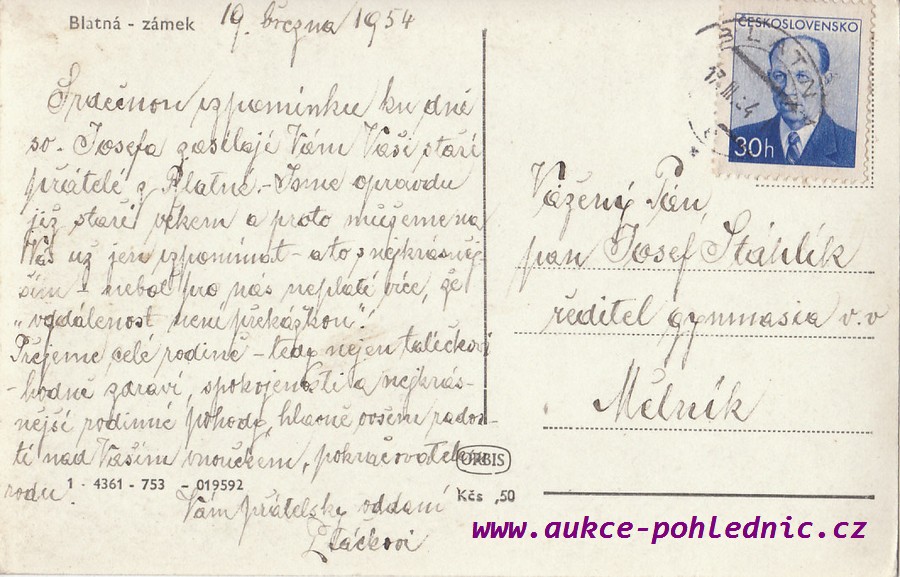 Blatná - zámek
19. března 1954
Srdečnou vzpomínku ku dni
sv. Josefa zasílají Vám Vaši staří
přátelé z Blatné. - Jsme opravdu
již staří věkem a proto můžeme na
Vás už jen vzpomínat - a to s nejkrásněj-
ším - neboť pro nás neplatí více, že
"vzdálenost není překážkou".
Přejeme celé rodině - tedy nejen tatíčkovi
- hodně zdraví, spokojenosti a nejkrás-
nější rodinné pohody, hlavně ovšem rados-
tí nad Vaším vnoučkem, pokračovatelem
rodu.
Vám přátelsky oddaní
ČESKOSLOVENSKO
30h
BLATNÁ
Vážený Pán,
pan Josef Stáhlík
ředitel gymnasia v. v.
Mělník
ORBIS
1 - 4361 - 753 - 019592
Kčs ,50
www.aukce-pohlednic.cz